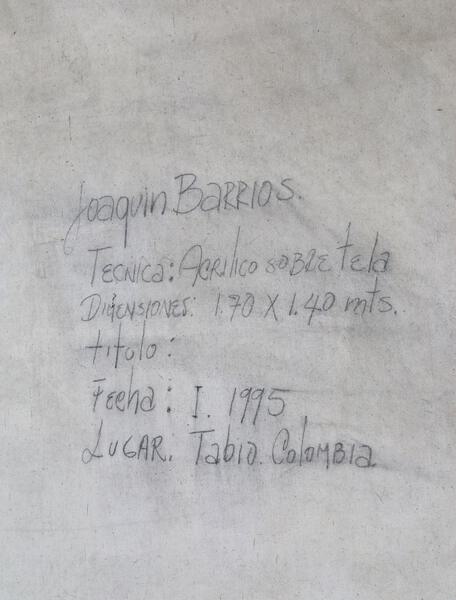 Joaquin Barrios.
Tecnica: Acrilico sobre tela
Dimensiones: 1.70 X 1.40 mts.
titulo:
Fecha: I. 1995
Lugar. Tabio. Colombia